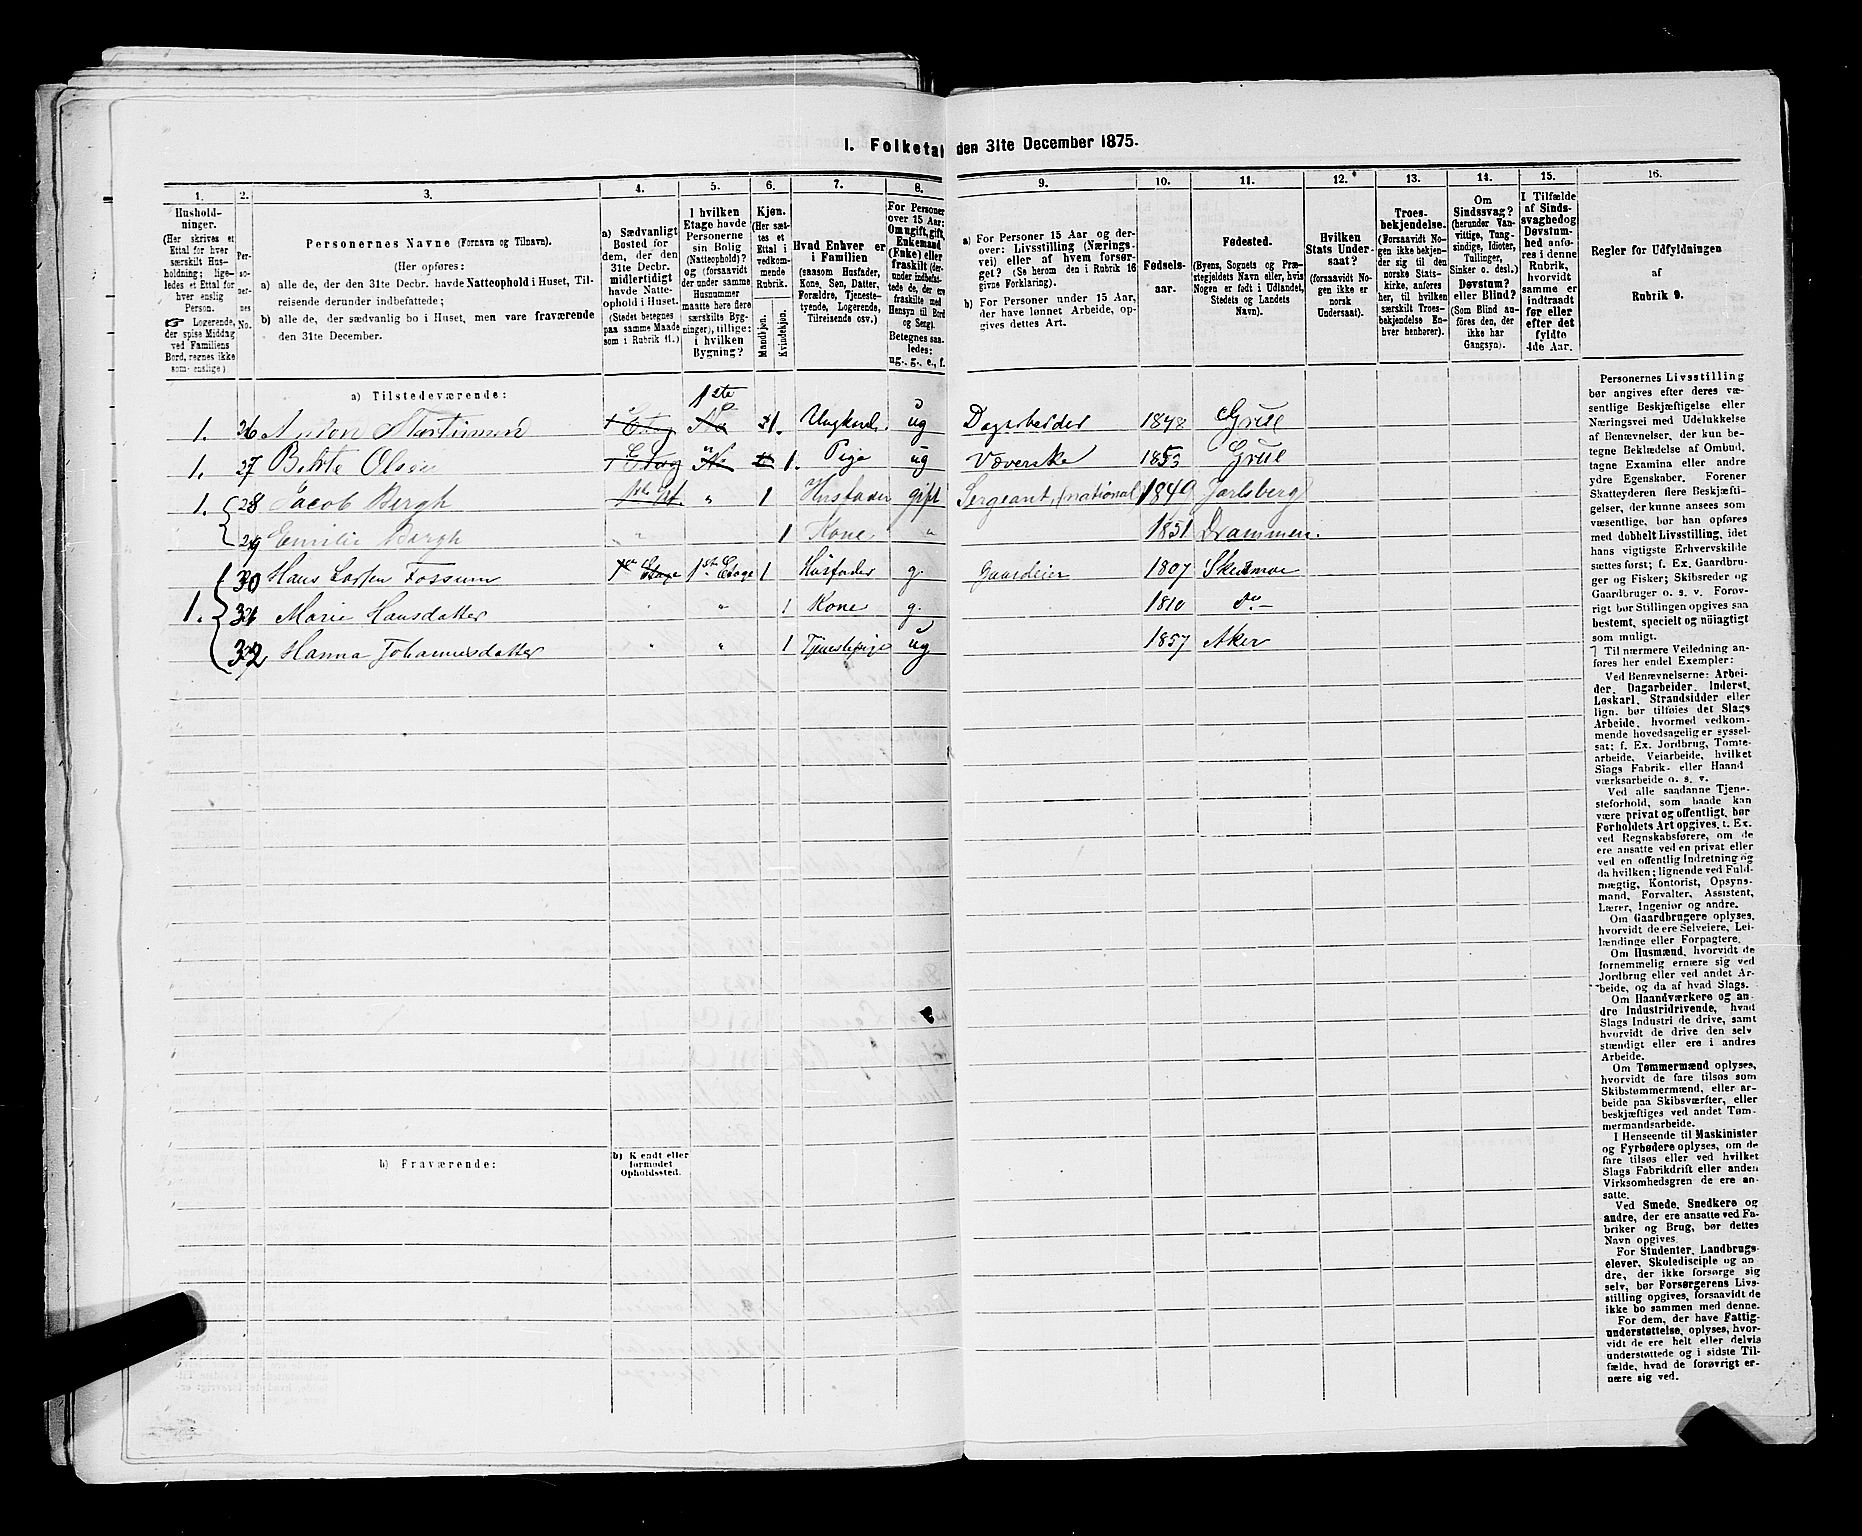 I. Folketal den 31te December 1875.
1.
2.
3.
4.
5.
6.
7.
8.
9.
10.
11.
12.
13.
14.
15.
16.
Hushold-
ninger.
(Her skrives et
Ettal for hver
særskilt Hus-
holdning; lige-
ledes et Ettal for
hver enslig
Person.
☞ Logerende,
der spise Middag
ved Familiens
Bord, regnes ikke
som enslige.)
Per-
so-
ner-
nes
No.
Personernes Navne (Fornavn og Tilnavn).
(Her opføres:
a) alle de, der den 31te Decbr. havde Natteophold i Huset, Til-
reisende derunder indbefattede;
b) alle de, der sædvanlig bo i Huset, men vare fraværende
den 31te December.
a) Sædvanligt
Bosted for
dem, der den
31te Decbr.
midlertidigt
havde Natte-
ophold i Huset.
(Stedet betegnes
paa samme Maade
som i Rubrik 11.)
I hvilken
Etage havde
Personerne
sin Bolig
(Natteophold)?
og (forsaavidt
der under samme
Husnummer
maatte høre flere
særskilte Byg-
ninger), tillige:
i hvilken
Bygning?
Kjøn.
(Her sæt-
tes et
Ettal i
vedkom-
mende
Rubrik.)
Mandkjøn.
Kvindekjøn.
Hvad Enhver er
i Familien
(saasom Husfader,
Kone, Søn, Datter,
Forældre, Tjeneste-
tyende, Logerende,
Tilreisende osv.)
For Personer
over 15 Aar:
Om ugift, gift,
Enkemand
(Enke) eller
fraskilt (der-
under indbefat-
tede de, der ere
fraskilte med
Hensyn til Bord
og Seng).
Betegnes saa-
ledes:
ug., g., e., f.
a) For Personer 15 Aar og der-
over: Livsstilling (Nærings-
vei) eller af hvem forsør-
get? (Se herom den i Rubrik 16
givne Forklaring).
b) For Personer under 15 Aar,
der have lønnet Arbeide, op-
gives dettes Art.
Fødsels-
aar.
Fødested.
(Byens, Sognets og Præ-
stegjeldets Navn eller, hvis
Nogen er født i Udlandet,
Stedets og Landets
Navn).
Hvilken
Stats Under-
saat?
(forsaavidt No-
gen ikke er
norsk
Undersaat).
Troes-
bekjendelse.
(Forsaavidt No-
gen ikke bekjen-
der sig til den
norske Stats-
kirke, anføres
her, til hvilken
særskilt Troes-
bekjendelse En-
hver henhører).
Om
Sindssvag?
(herunder Van-
vittige, Tung-
sindige, Idioter,
Tullinger,
Sinker o. desl.)
Døvstum?
eller Blind?
(Som Blind an-
føres den, der
ikke har
Gangsyn).
I Tilfælde
af Sinds-
svaghed og
Døvstum-
hed anfø-
res i denne
Rubrik,
hvorvidt
samme er
indtraadt
før eller
efter det
fyldte
4de Aar.
Regler for Udfyldningen
af
Rubrik 9.
a) Tilstedeværende: 1ste
1. 26 Anton Martinsen 1. Ungkarl. ug Dagarbeider 1848 Grue
1. 27 Berte Olsen 1. Pige ug Væverske 1853 Grue
1. 28 Jacob Bergh " 1 Husfader gift Sergeant, (national) 1849 Jarlsberg
29 Emilie Bergh " 1 Kone " 1851 Drammen.
30 Hans Larsen Fossum 1ste Etage 1ste Etage 1 Husfader g. Gaardeier 1807 Skedsmoe
1. 31 Marie Hansdatter " " 1 Kone g. 1810 do
32 Hanna Johannesdatter " " 1 Tjenestepige ug 1857 Aker
b) Fraværende:
b) Kjendt eller
formodet
Opholdssted.
Personernes Livsstilling
bør angives efter deres væ-
sentlige Beskjæftigelse eller
Næringsvei med Udelukkelse
af Benævnelser, der kun be-
tegne Beklædelse af Ombud,
tagne Examina eller andre
ydre Egenskaber. Forener
Skatteyderen flere Beskjæfti-
gelser, der kunne ansees som
væsentlige, bør han opføres
med dobbelt Livsstilling, idet
hans vigtigste Erhvervskilde
sættes først; f. Ex. Gaardbru-
ger og Fisker; Skibsreder og
Gaardbruger o. s. v. Forøv-
rigt bør Stillingen opgives saa
bestemt, specielt og nöiagtigt
som muligt.
Til nærmere Veiledning an-
føres her endel Exempler:
Ved Benævnelserne: Arbei-
der, Dagarbeider, Inderst,
Løskarl, Strandsidder eller
lign. bør tilføies det Slags
Arbeide, hvormed vedkom-
mende hovedsagelig er syssel-
sat; f. Ex. Jordbrug, Tomte-
arbeide, Veiarbeide, hvilket
Slags Fabrik- eller Haand-
værksarbeide o. s. v.
Ved alle saadanne Tjene-
steforhold, som baade kan
være privat og offentligt, bør
Forholdets Art opgives, t. Ex.
ved Regnskabsførere, om de
ere ansatte ved en privat eller
ved en offentlig Indretning og
da hvilken; lignende ved Fuld-
mægtig, Kontorist, Opsyns-
mand, Forvalter, Assistent,
Lærer, Ingeniør og andre.
Om Gaardbrugere oplyses,
hvorvidt de ere Selveiere, Lei-
lændinge eller Forpagtere.
Om Husmænd, hvorvidt de
fornemmelig ernære sig ved
Jordbrug eller ved andet Ar-
beide, og da af hvad Slags.
Om Haandværkere og an-
dre Industridrivende, hvad
Slags Industri de drive, samt
hvorvidt de drive den selv-
stændigt eller ere i andres
Arbeide.
Om Tømmermænd oplyses,
hvorvidt de fare tilsøs som
Skibstømmermænd, eller ar-
beide paa Skibsværfter, eller
beskjæftiges ved andet Tøm-
mermandsarbeide.
I Henseende til Maskinister
og Fyrbødere oplyses, om de
fare tilsøs eller ved hvilket
Slags Fabrikdrift eller anden
Virksomhedsgren de ere an-
satte.
Ved Smede, Snedkere og
andre, der ere ansatte ved Fa-
briker og Brug, bør dettes
Navn opgives.
For Studenter, Landbrugs-
elever, Skoledisciple og an-
dre, der ikke forsørge sig
selv, bør Forsørgerens Livs-
stilling opgives, forsaavidt de
ikke bo sammen med denne.
For dem, der have Fattig-
understøttelse, oplyses, hvor-
vidt de ere helt eller delvis
understøttede og i sidste Til-
fælde, hvad de forøvrigt er-
nære sig ved.